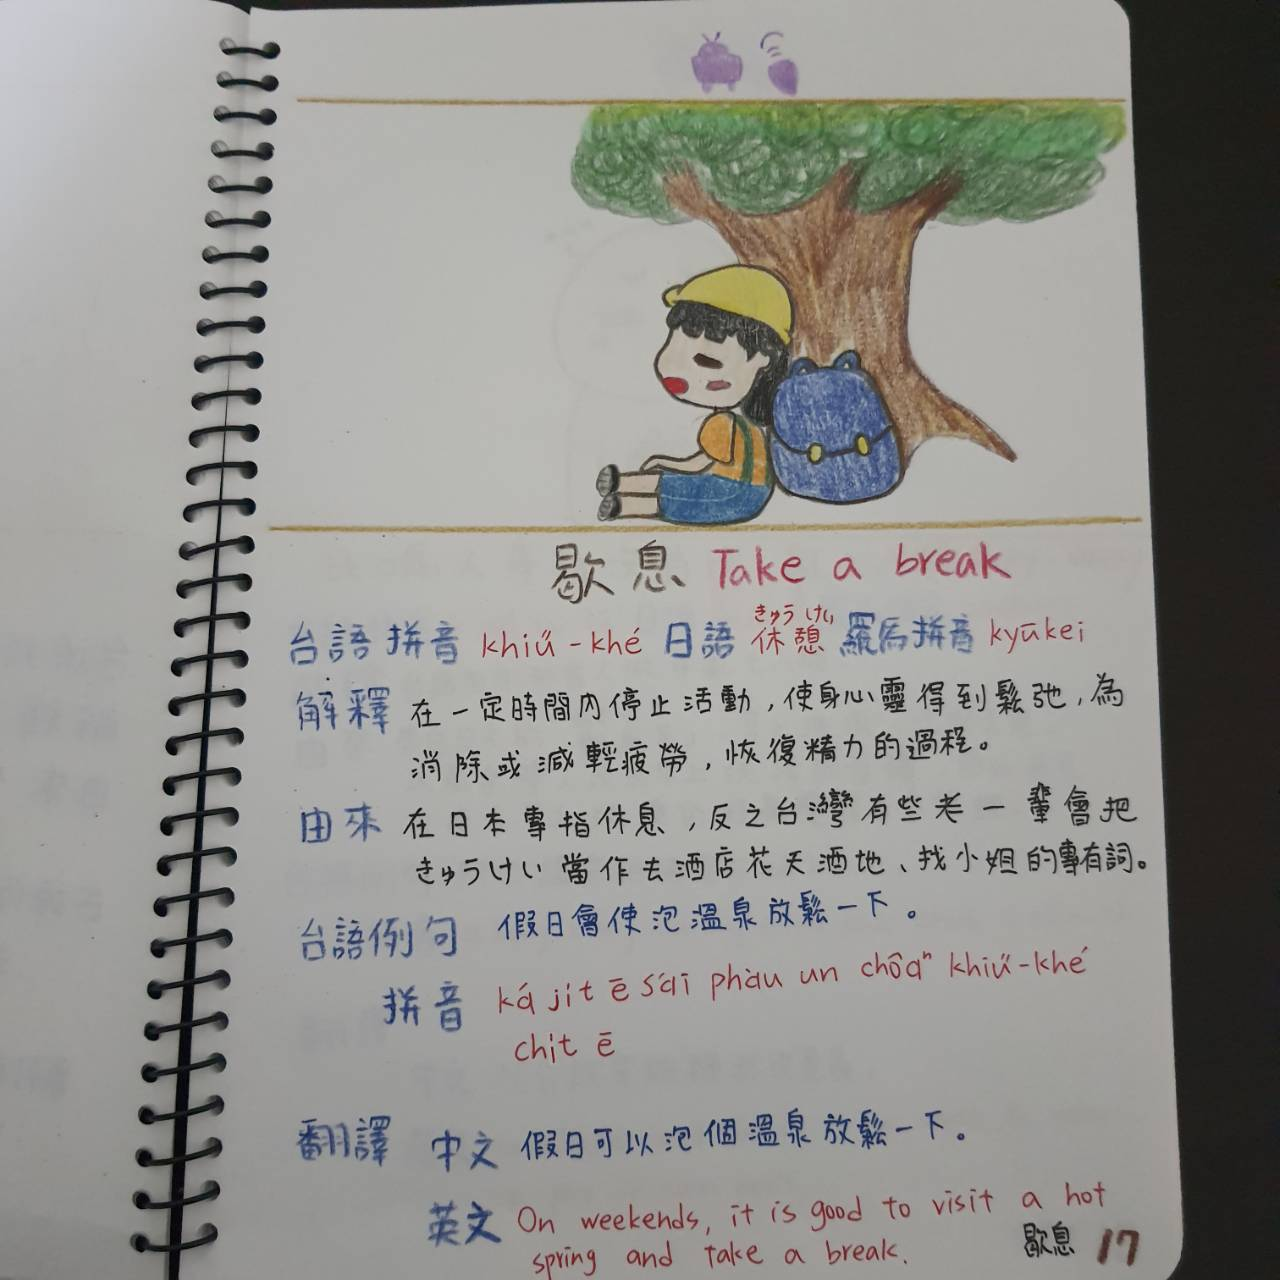 歇息 Take a break
きゅう けい
台語拼音 khiú-khé 日語 休憩 羅馬拼音 kyūkei
解釋 在一定時間內停止活動，使身心靈得到鬆弛，為
消除或減輕疲勞，恢復精力的過程。
由來 在日本專指休息，反之台灣有些老一輩會把
きゅうけい當作去酒店花天酒地、找小姐的專有詞。
台語例句 假日會使泡溫泉放鬆一下。
拼音 ká jit ē sái phàu un chôaⁿ khiú-khé
chit ē
翻譯 中文 假日可以泡個溫泉放鬆一下。
英文 On weekends, it is good to visit a hot
spring and take a break.
歇息 17